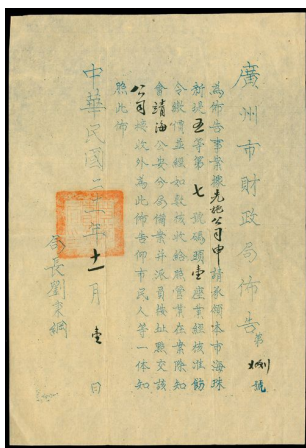 廣州市財政局佈告
第 號
為佈告事案據先施公司申請承領本市海珠
新堤五等第七號碼頭壹座業經核准飭
令繳價並經如數核收給照營業在案除知
會靖海公安分局備案并派員按址點交該
公司接收外為此佈告仰市民人等一体知
照此佈
中華民國二十一年十一月壹日
局長劉秉綱